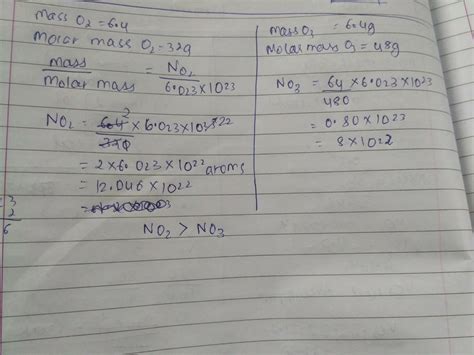 mass O₂ = 6.4
molar mass O₂ = 32g
mass / Molar mass = NO₂ / 6.023×10²³
NO₂ = 6.4² / 320 × 6.023×10²²
= 2×6.023×10²² atoms
= 12.046×10²²
NO₂ > NO₃
mass O₃ = 6.4g
Molar mass O₃ = 48g
NO₃ = 64 × 6.023×10²³ / 480
= 0.80×10²³
= 8×10²²
3
2
6